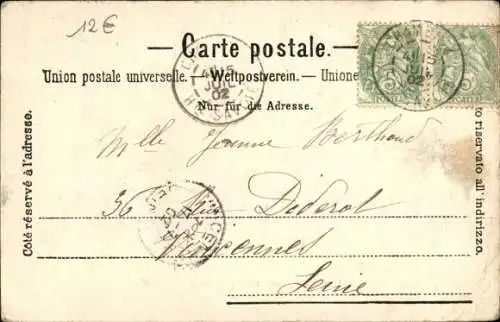 12€
— Carte postale. —
Union postale universelle. — Weltpostverein. — Unione
Nur für die Adresse.
Côté réservé à l'adresse.
riservato all'indirizzo.
15
JUIL
02
Hte SAVOIE
02
Mlle Jeanne Berthoud
56 Rue Diderot
Vincennes
Seine